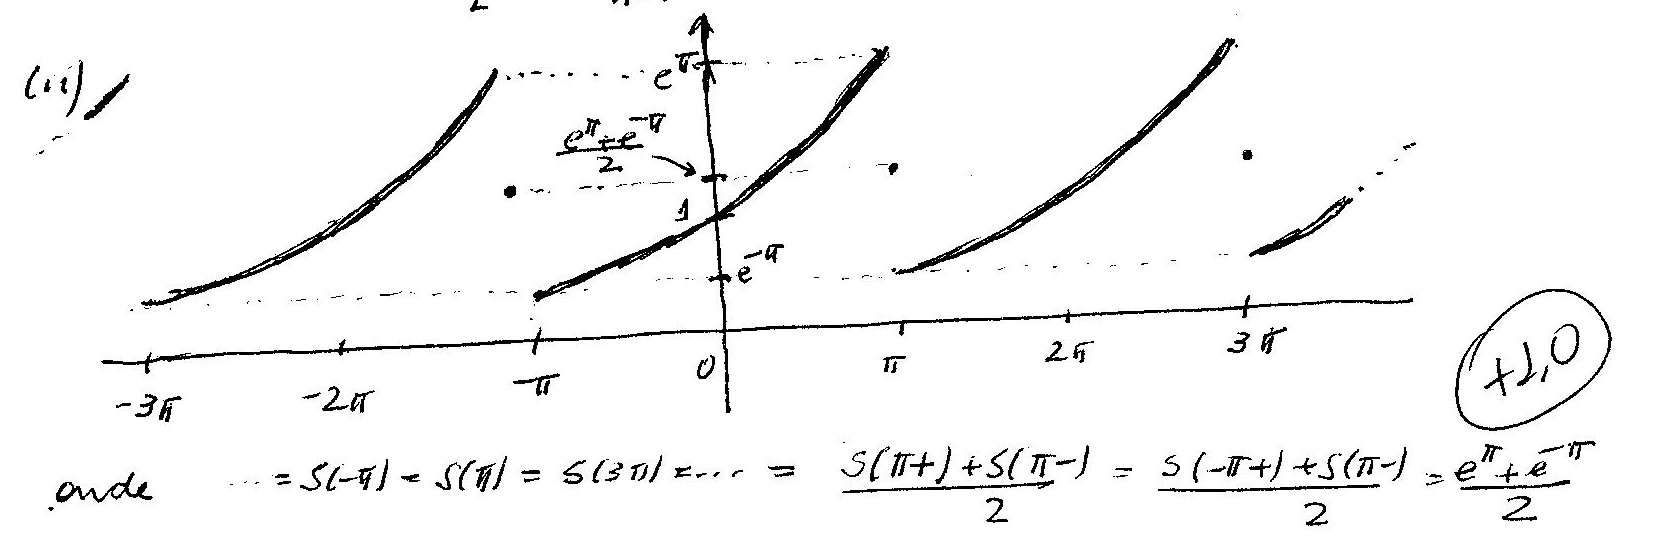 (ii)
e^π
(e^π + e^-π)/2
1
e^-π
-3π -2π -π 0 π 2π 3π
+1,0
onde ... = S(-π) = S(π) = S(3π) = ... = (S(π+) + S(π-))/2 = (S(-π+) + S(π-))/2 = (e^π + e^-π)/2